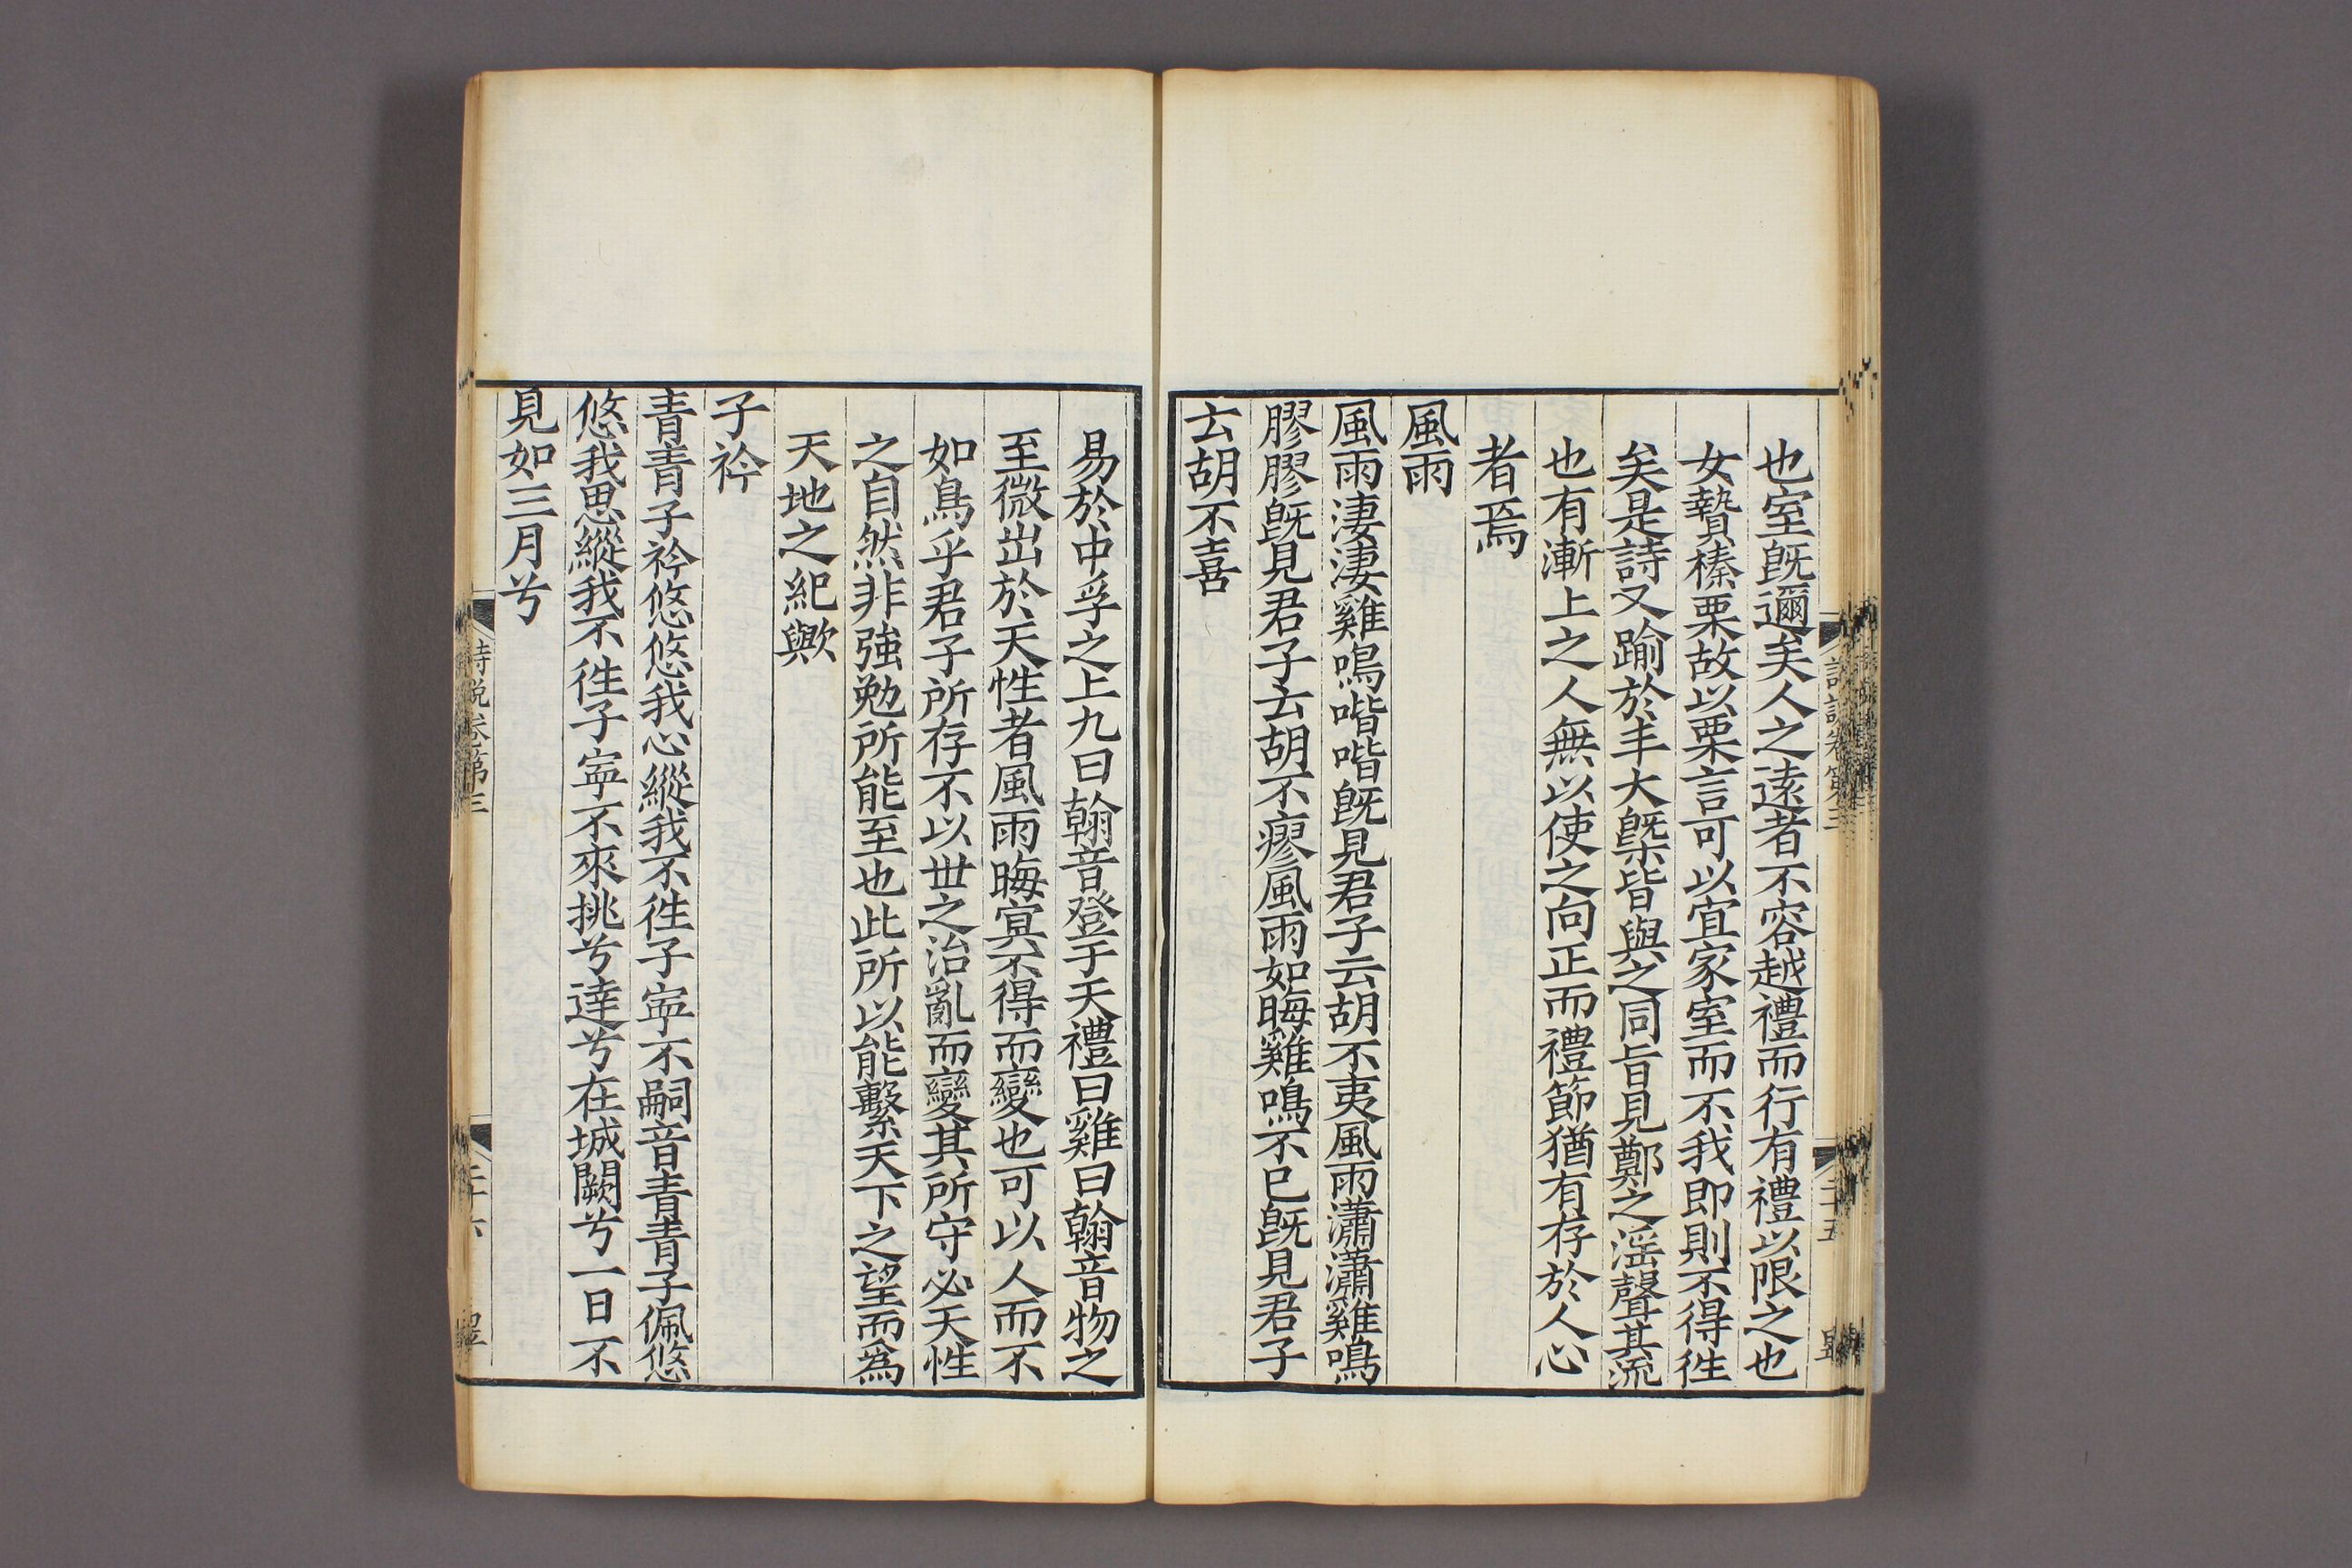 也室旣邇矣人之逺者不容越禮而行有禮以限之也
女贄榛栗故以栗言可以宜家室而不我即則不得徃
矣是詩又踰於丰大槩皆與之同旨見鄭之淫聲其流
也有漸上之人無以使之向正而禮節猶有存於人心
者焉
風雨
風雨淒淒雞鳴喈喈旣見君子云胡不夷風雨瀟瀟雞鳴
膠膠旣見君子云胡不瘳風雨如晦雞鳴不已旣見君子
云胡不喜
詩說卷第三
二十五
易於中孚之上九曰翰音登于天禮曰雞曰翰音物之
至微出於天性者風雨晦寘不得而變也可以人而不
如鳥乎君子所存不以丗之治亂而變其所守必天性
之自然非強勉所能至也此所以能繫天下之望而為
天地之紀歟
子衿
青青子衿悠悠我心縱我不徃子寧不嗣音青青子佩悠
悠我思縱我不徃子寧不來挑兮達兮在城闕兮一日不
見如三月兮
詩說卷第三
二十六